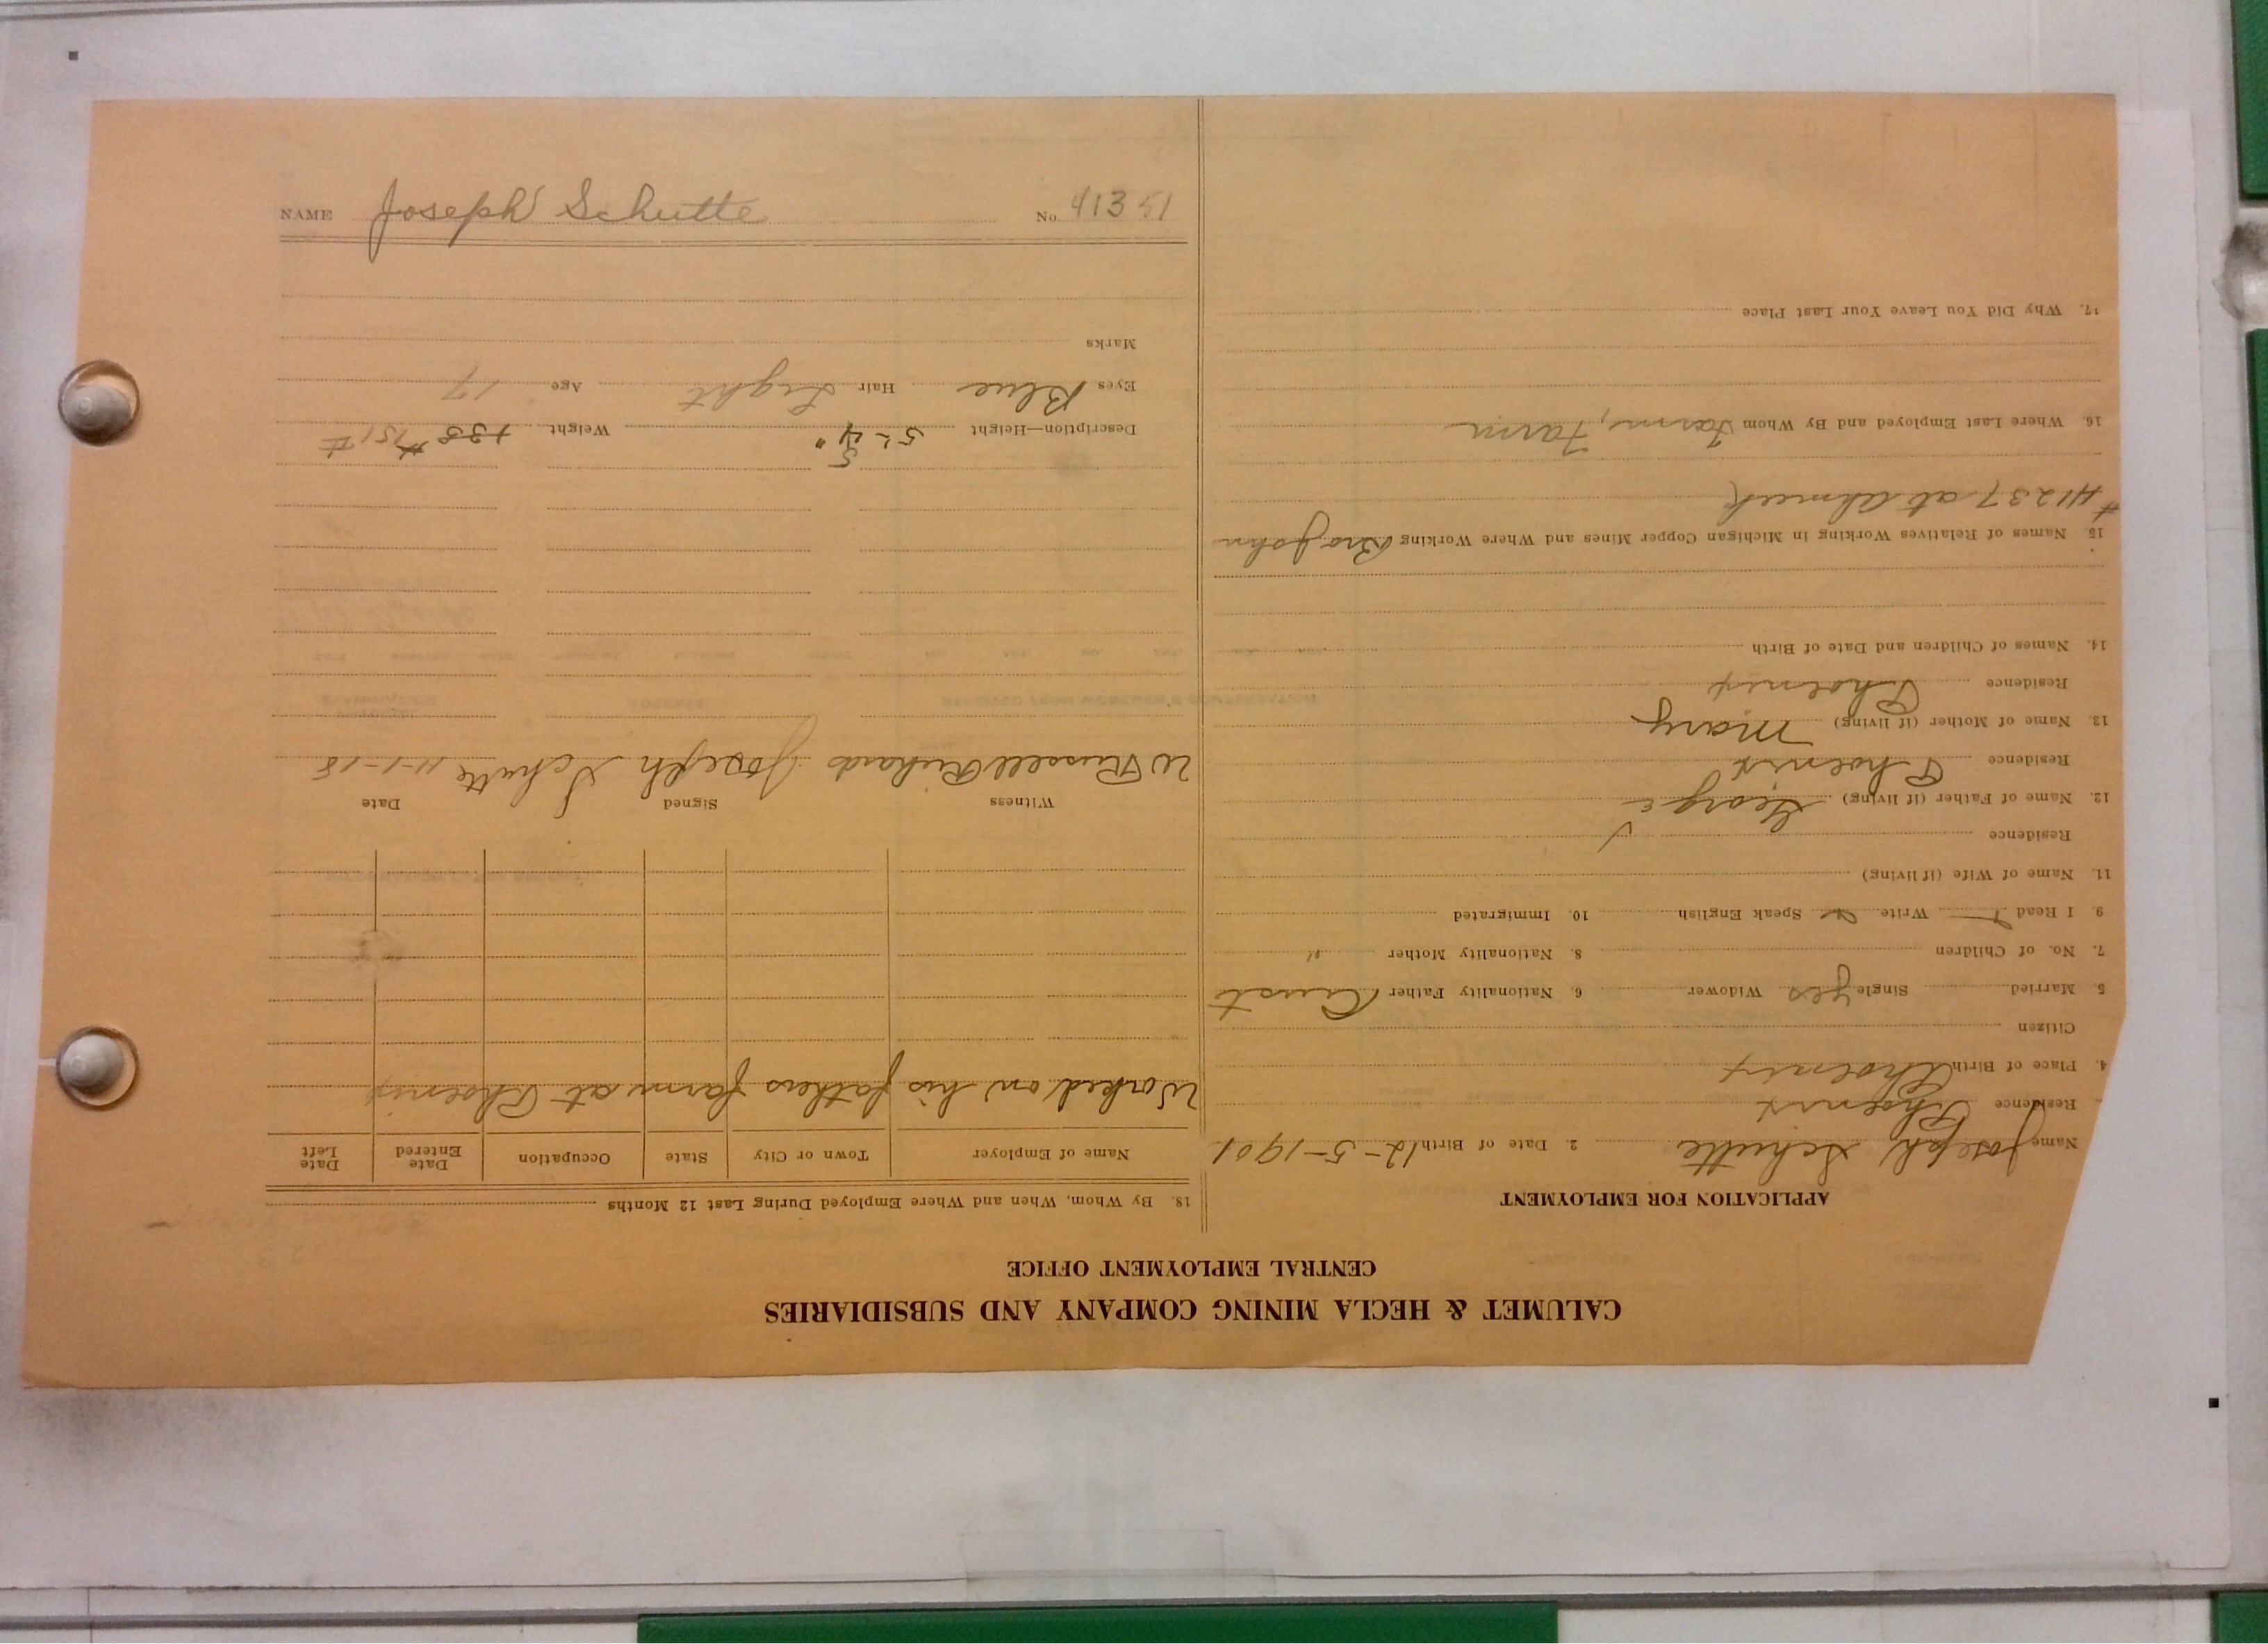 CALUMET & HECLA MINING COMPANY AND SUBSIDIARIES
CENTRAL EMPLOYMENT OFFICE
APPLICATION FOR EMPLOYMENT
Name Joseph Schutte 2. Date of Birth 12-5-1901
Residence Phoenix
4. Place of Birth Phoenix
Citizen
5. Married Single yes Widower 6. Nationality Father Aust
7. No. of Children 8. Nationality Mother "
9. I Read Write Speak English 10. Immigrated
11. Name of Wife (if living)
Residence
12. Name of Father (if living) George
Residence Phoenix
13. Name of Mother (if living) Mary
Residence Phoenix
14. Names of Children and Date of Birth
15. Names of Relatives Working in Michigan Copper Mines and Where Working Bro John
# 41237 at Ahmeek
16. Where Last Employed and By Whom Farm, Farm
17. Why Did You Leave Your Last Place
18. By Whom, When and Where Employed During Last 12 Months
Name of Employer Town or City State Occupation Date Entered Date Left
Worked on his fathers farm at Phoenix
Witness Signed Date
W Russell Richards Joseph Schutte 11-1-18
Description—Height 5'-4" 5 Weight 138# 151#
Eyes Blue Hair Light Age 17
Marks
NAME Joseph Schutte No. 41351